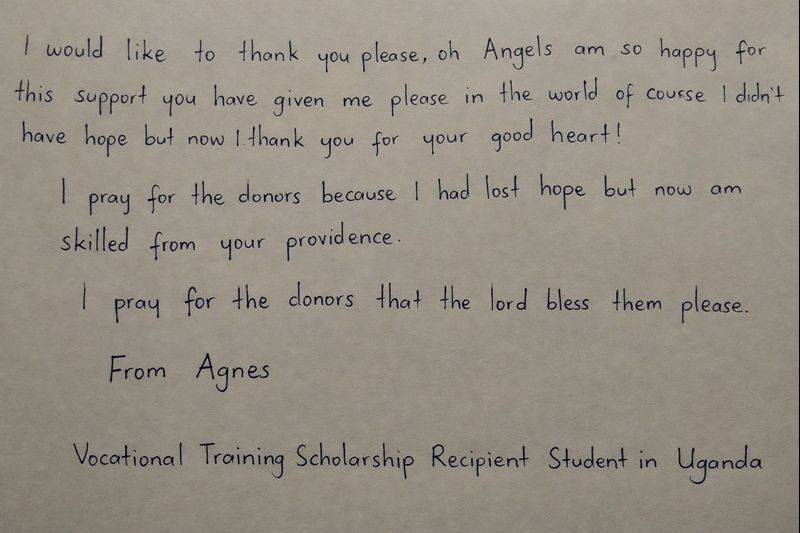 I would like to thank you please, oh Angels am so happy for
this support you have given me please in the world of course I didn't
have hope but now I thank you for your good heart!
I pray for the donors because I had lost hope but now am
skilled from your providence.
I pray for the donors that the lord bless them please.
From Agnes
Vocational Training Scholarship Recipient Student in Uganda